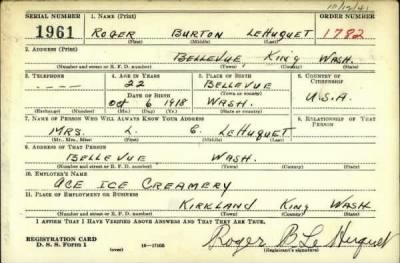 10/15/41
SERIAL NUMBER 1. NAME (Print) ORDER NUMBER
1961 ROGER BURTON LEHUQUET 1782
(First) (Middle) (Last)
2. ADDRESS (Print)
BELLEVUE KING WASH.
(Number and street or R. F. D. number) (Town) (County) (State)
3. TELEPHONE 4. AGE IN YEARS 5. PLACE OF BIRTH 6. COUNTRY OF CITIZENSHIP
22 BELLEVUE
DATE OF BIRTH (Town or county)
Oct 6 1918 WASH. U.S.A.
(Exchange) (Number) (Mo.) (Day) (Yr.) (State or country)
7. NAME OF PERSON WHO WILL ALWAYS KNOW YOUR ADDRESS 8. RELATIONSHIP OF THAT PERSON
MRS. L. C. LEHUQUET
(Mr., Mrs., Miss) (First) (Middle) (Last)
9. ADDRESS OF THAT PERSON
BELLEVUE WASH.
(Number and street or R. F. D. number) (Town) (County) (State)
10. EMPLOYER'S NAME
ACE ICE CREAMERY
11. PLACE OF EMPLOYMENT OR BUSINESS
KIRKLAND KING WASH
(Number and street or R. F. D. number) (Town) (County) (State)
I AFFIRM THAT I HAVE VERIFIED ABOVE ANSWERS AND THAT THEY ARE TRUE.
REGISTRATION CARD
D. S. S. Form 1 (over) 16-17105
Roger B Le Huquet
(Registrant's signature)